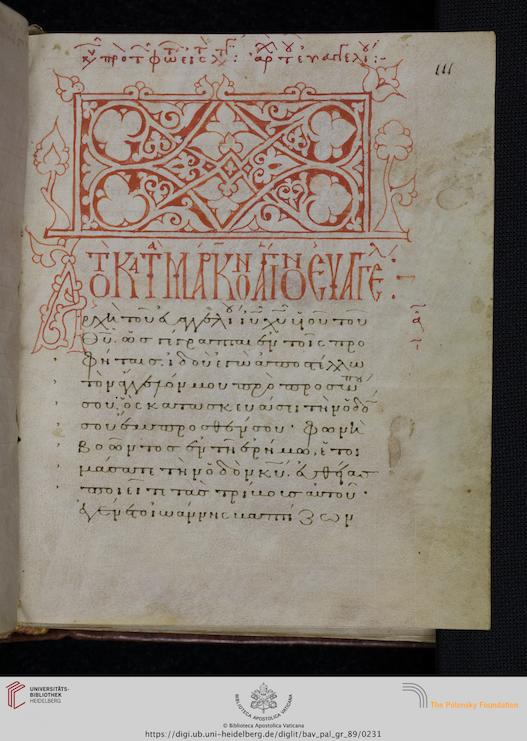 111
ΤΟ ΚΑΤΑ ΜΑΡΚΟΝ ΑΓΙΟΝ ΕΥΑΓΓΕΛ
Αρχὴ τοῦ εὐαγγελίου ιυ χυ υἱοῦ τοῦ
θυ, ὡς γέγραπται ἐν τοῖς προ
φήταις. ἰδοὺ ἐγὼ ἀποστέλλω
τὸν ἄγγελόν μου πρὸ προσώπου
σου, ὃς κατασκευάσει τὴν ὁδόν
σου ἔμπροσθέν σου. φωνὴ
βοῶντος ἐν τῇ ἐρήμω, ἑτοι
μάσατε τὴν ὁδὸν κυ. εὐθείας
ποιεῖτε τὰς τρίβους αὐτοῦ.
ἐγένετο ἰωάννης βαπτίζων
UNIVERSITÄTS-
BIBLIOTHEK
HEIDELBERG
BIBLIOTECA APOSTOLICA VATICANA
The Polonsky Foundation
© Biblioteca Apostolica Vaticana
https://digi.ub.uni-heidelberg.de/diglit/bav_pal_gr_89/0231